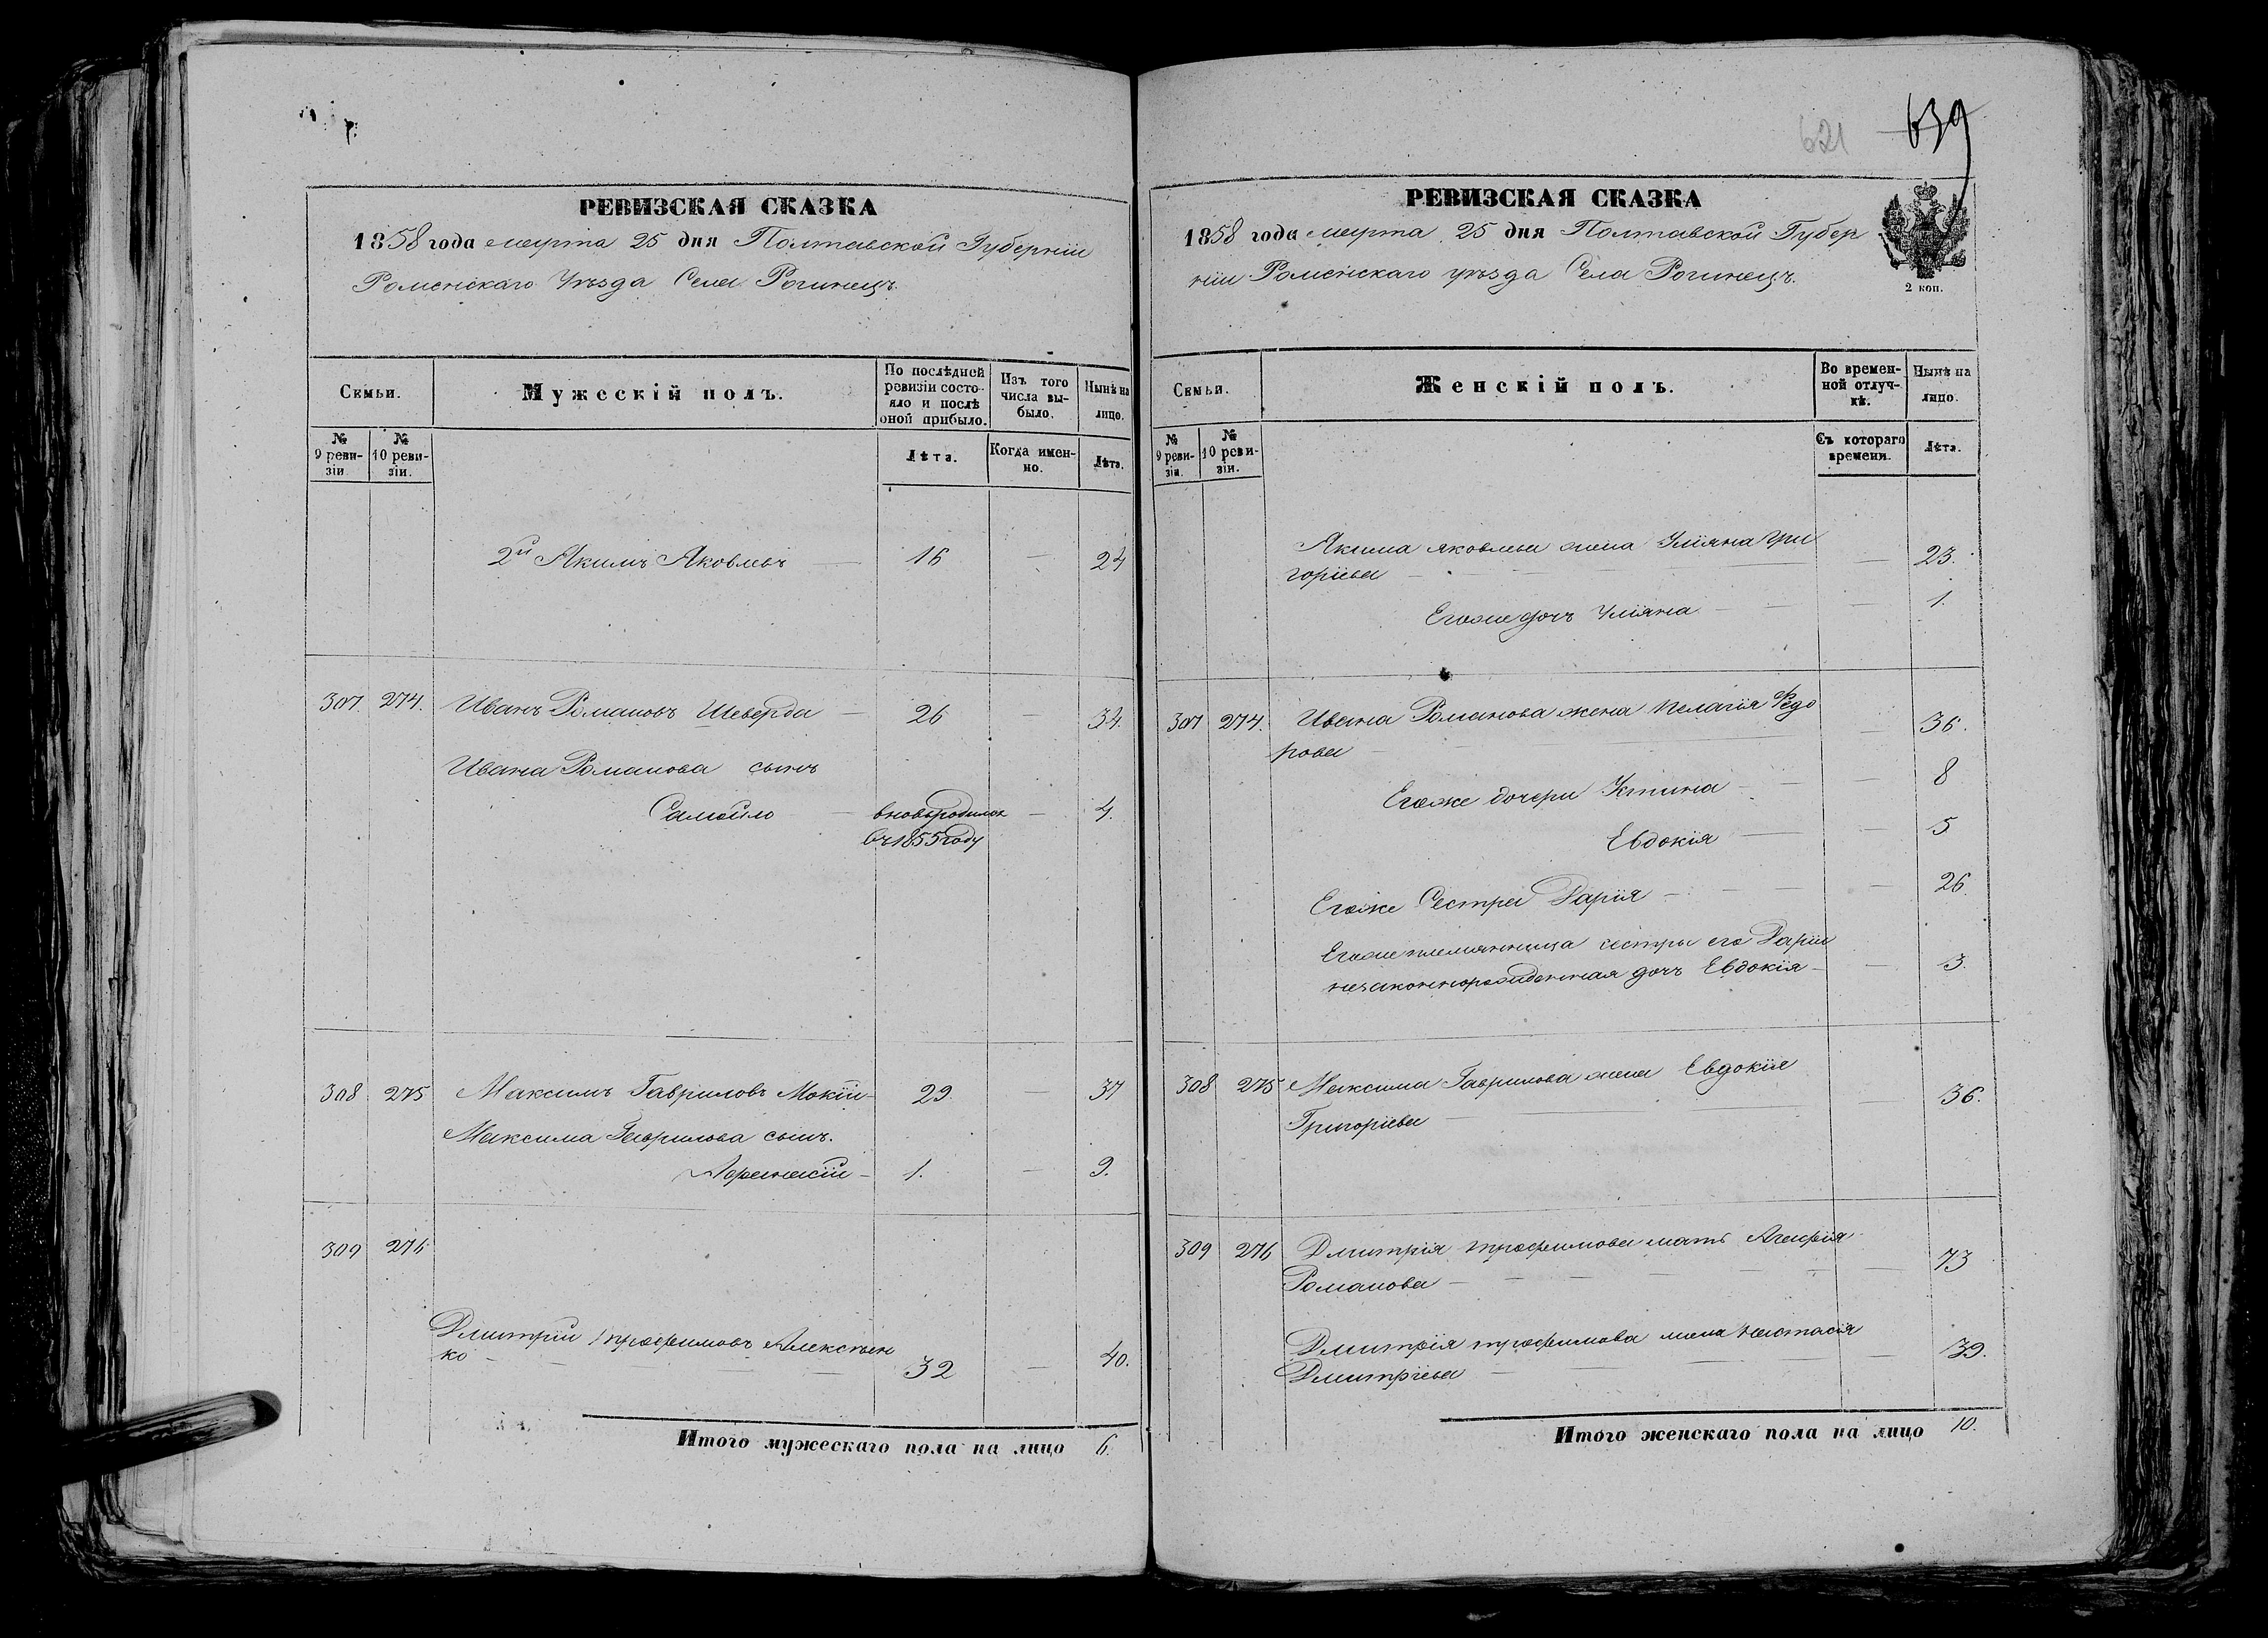 РЕВИЗСКАЯ СКАЗКА
1858 года марта 25 дня Полтавской Губерніи
Роменскаго Уѣзда Села Рогинецъ.
Семьи.
Мужескій полъ.
По послѣдней ревизіи состояло и послѣ оной прибыло.
Изъ того числа выбыло.
Нынѣ на лицо.
№ 9 ревизіи.
№ 10 ревизіи.
Лѣта.
Когда именно.
Лѣта.
2й Акимъ Яковлевъ — 16 — 24
307. 274. Иванъ Романовъ Шеверда — 26 — 34.
Ивана Романова сынъ
Самойло — вновьродился — 4.
въ 1855 году
308 275 Максимъ Гавриловъ Мокій — 29 — 37
Максима Гаврилова сынъ.
1. — 9.
309 276
Дмитрій трофимовъ Алексѣен
ко — 32 — 40.
Итого мужескаго пола на лицо 6.
621 639
РЕВИЗСКАЯ СКАЗКА
1858 года марта 25 дня Полтавской Губер
ніи Роменскаго уѣзда Села Рогинецъ.
2 коп.
Семьи.
Женскій полъ.
Во временной отлучкѣ.
Нынѣ на лицо.
№ 9 ревизіи.
№ 10 ревизіи.
Съ котораго времени.
Лѣта.
Акима яковлева жена Уліяна Гри
горіева — 23.
Егоже дочъ Уліяна — 1.
307 274. Ивана Романова жена Пелагія Федо
рова — 36.
Егоже дочери Устина — 8
Евдокія — 5
Егоже Сестра Дарія — 26
Егоже племянница сестры его Даріи
незаконнорожденная дочъ Евдокія — 3.
308 275 Максима Гаврилова жена Евдокія
Григоріева — 36.
309 276 Дмитрія трофимова мать Агафія
Романова — 73
Дмитрія трофимова жена Настасія
Дмитріева — 39.
Итого женскаго пола на лицо 10.